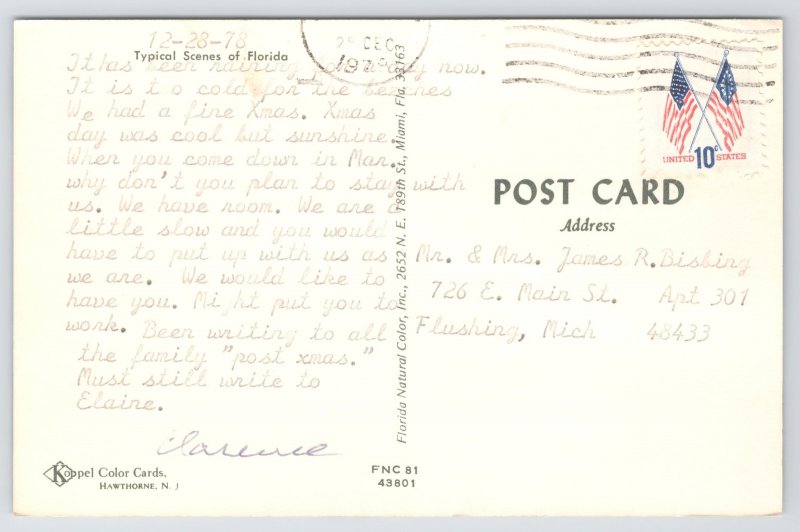 12-28-78
Typical Scenes of Florida
It has been raining for a day now.
It is to cold for the beaches
We had a fine Xmas. Xmas
day was cool but sunshine.
When you come down in Mar.
why don't you plan to stay with
us. We have room. We are a
little slow and you would
have to put up with us as
we are. We would like to
have you. Might put you to
work. Been writing to all
the family "post xmas."
Must still write to
Elaine.
Clarence
Koppel Color Cards,
HAWTHORNE, N. J
Florida Natural Color, Inc., 2652 N. E. 189th St., Miami, Fla. 33163
FNC 81
43801
DEC
197
UNITED 10c STATES
POST CARD
Address
Mr. & Mrs. James R. Bisbing
726 E. Main St. Apt 301
Flushing, Mich 48433